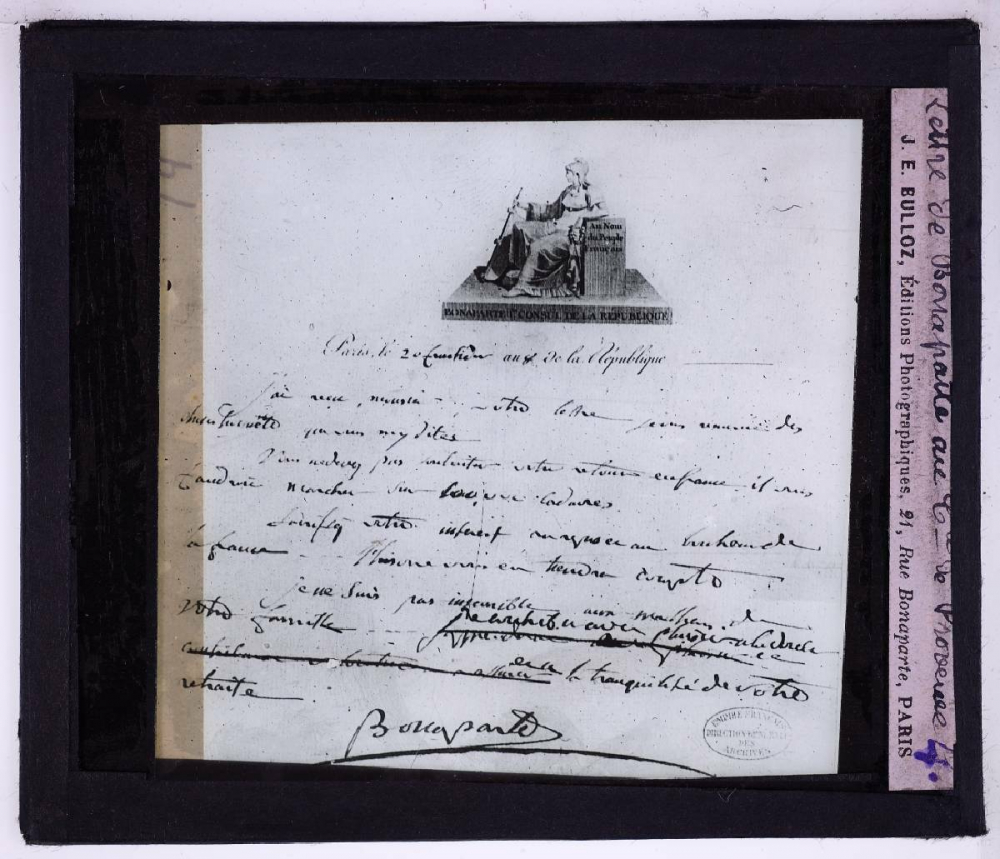 Au Nom
du Peuple
Français
BONAPARTE 1er CONSUL DE LA REPUBLIQUE
Paris, le 20 fructidor an de la République
j'ai reçu, monsieur, votre lettre je vous remercie des
choses honnêtes que vous my dites
Vous ne devez pas souhaiter votre retour en france il vous
faudroit marcher sur 100,000 cadavres
sacrifiez votre interest au repos et au bonheur de
la france l'histoire vous en tiendra compte
je ne suis pas insensible aux malheurs de
votre famille je contribuerai avec plaisir à la
la tranquillité de votre
retraite
Bonaparte
EMPIRE FRANÇAIS
DIRECTION GENle
DES
ARCHIVES
Lettre de Bonaparte au Cte de Provence
J. E. BULLOZ, Éditions Photographiques, 21, Rue Bonaparte, PARIS